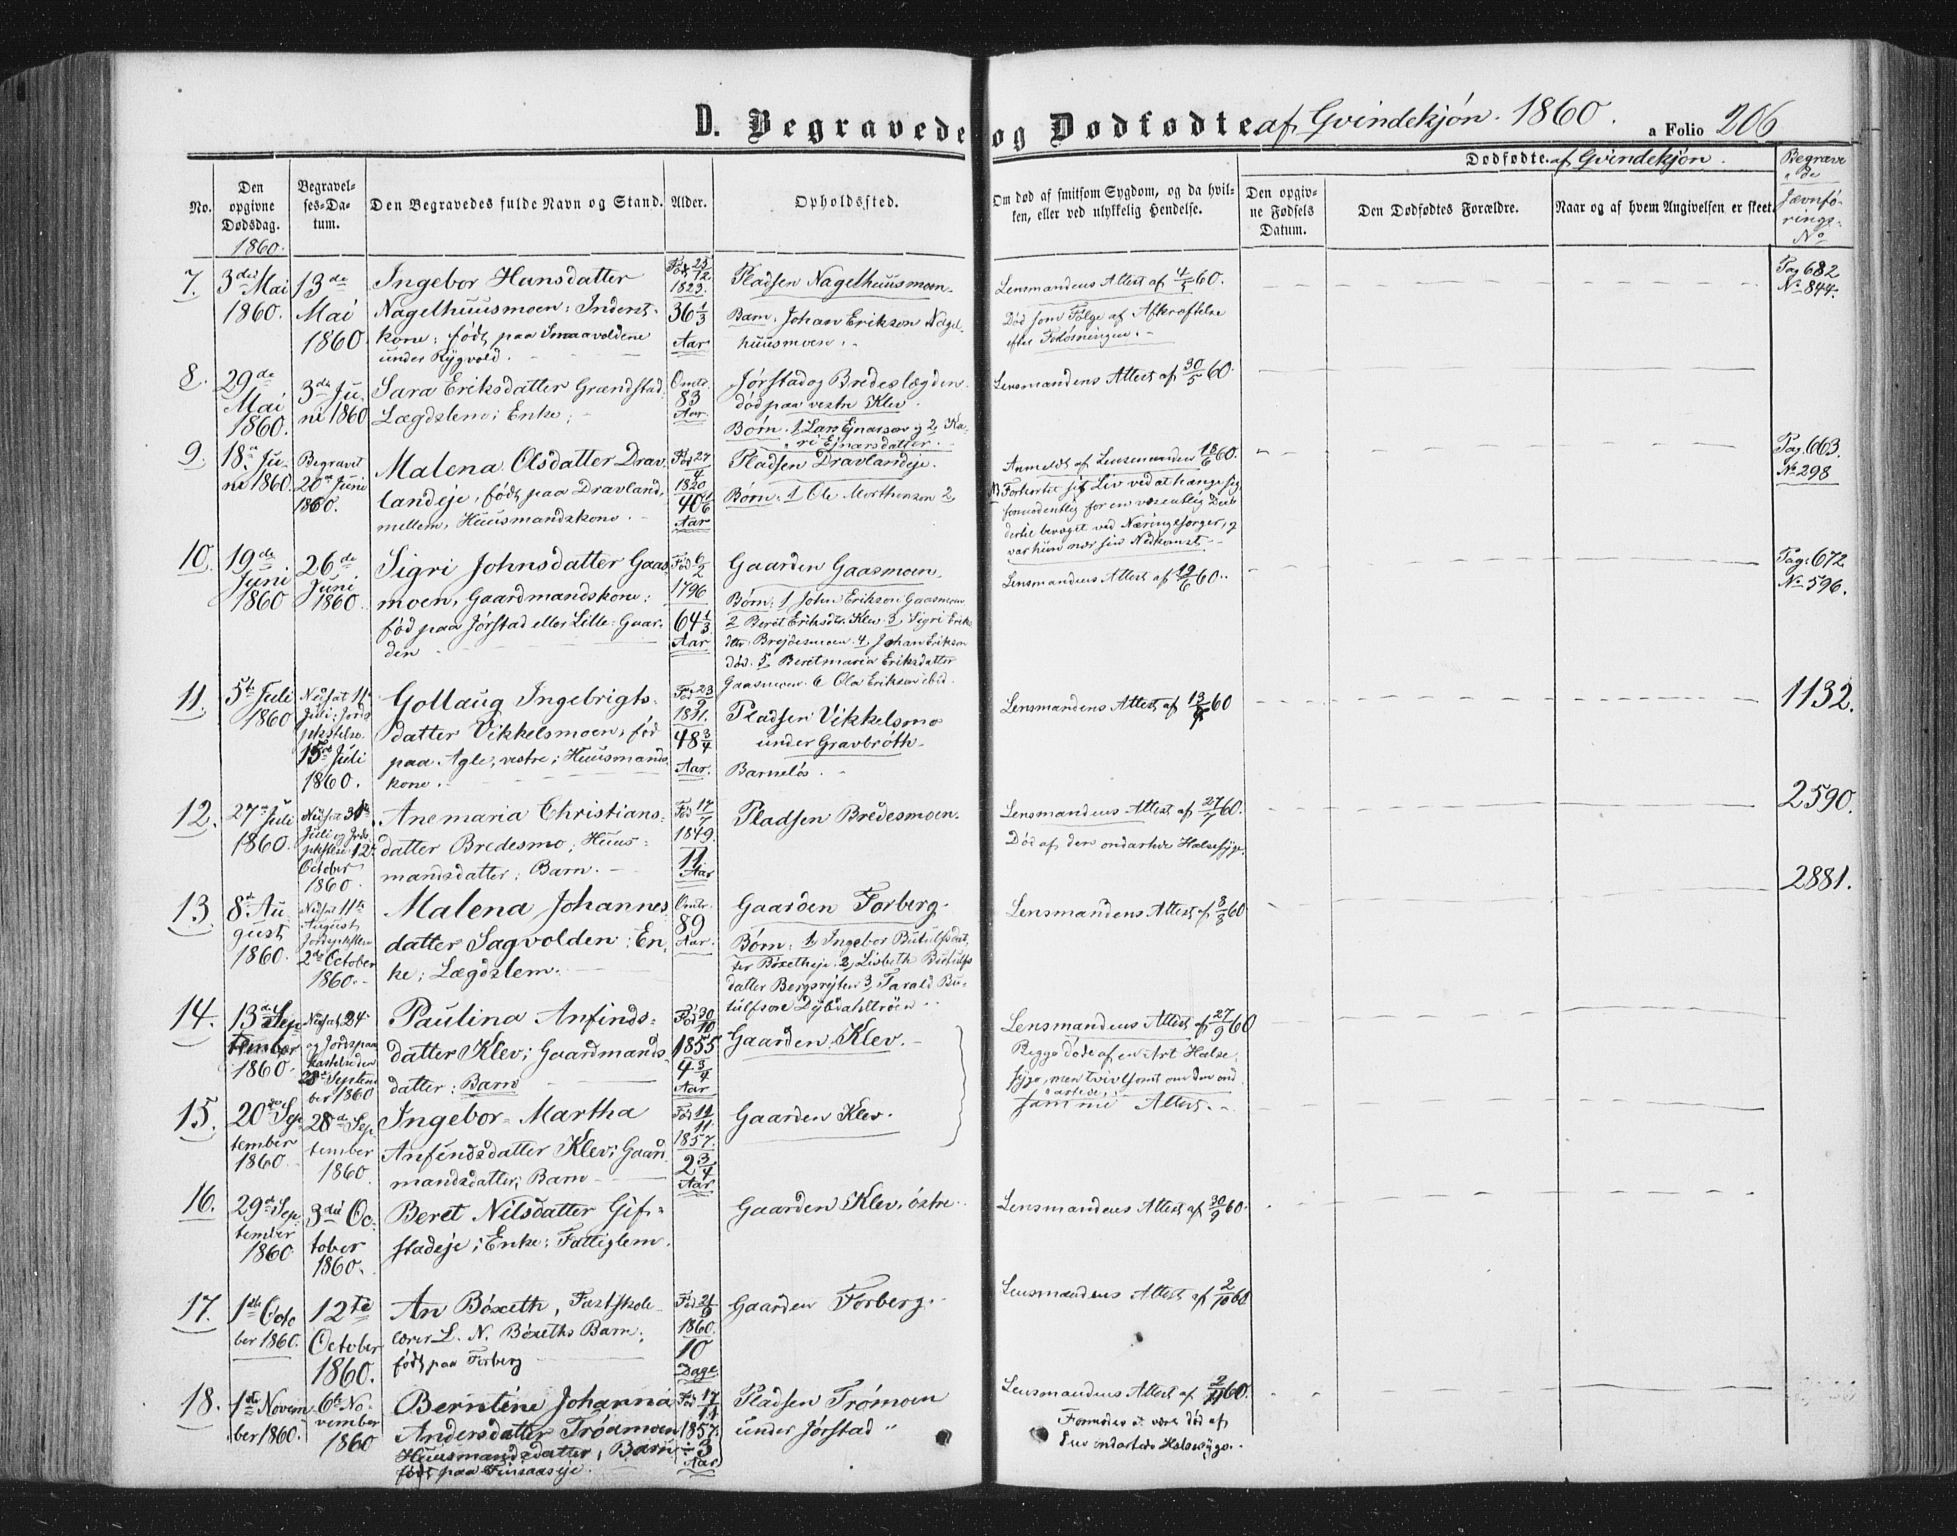 D. Begravede og Dødfødte af Qvindekjøn. 1860. a Folio 206
Dødfødte af Qvindekjøn.
No.
Den opgivne Dødsdag. 1860.
Begravelses-Datum.
Den Begravedes fulde Navn og Stand.
Alder.
Opholdssted.
Om død af smitsom Sygdom, og da hvilken, eller ved ulykkelig Hendelse.
Den opgivne Fødsels Datum.
Den Dødfødtes Forældre.
Naar og af hvem Angivelsen er skeet.
Begravede Jævnførings-No
7. 3die Mai 1860.
13de Mai 1860
Ingebor Hansdatter
Nagelhuusmoen; Inderst-
kone; født paa Smaavoldene
under Rygvold.
Fød 25/12 1823. 36 1/3 Aar
Pladsen Nagelhuusmoen.
Barn: Johan Erikson Nagel-
huusmoen.
Lensmandens Attest af 4/5 60.
Død som Følge af Afkræftelse
efter Forløsningen.
Pag 682
No 844.
8. 29de Mai 1860.
3die Juni 1860
Sara Eriksdatter Grændstad
Lægdslem; Enke;
Omtr. 83 Aar
Jørstad og Bredeslægden.
død paa vestre Klev.
Børn. 1 Lars Ejnarson og 2 Ka-
ri Ejnarsdatter.
Lensmandens Attest af 30/5 60.
9. 18de Juni 1860.
Begravet 20de Juni 1860.
Malena Olsdatter Drav-
landeje, født paa Dravland,
mellem, Huusmandskone.
Fød 27/4 1820 40 1/6 Aar
Pladsen Dravlandeje.
Børn: 1 Ole Morthenson 2
Anmeldt af Lensmanden 18/6 60.
Forkortet sit Liv ved at hænge sig,
formodentlig for en væsentlig Deel
dertil bevæget ved Næringssorger, og
var hun nær sin Nedkomst.
Pag. 663.
No 298
10. 19de Juni 1860
26de Juni 1860.
Sigri Johnsdatter Gaas-
moen, Gaardmandskone;
fød paa Jørstad eller Lille-Gaar-
den
Fød 6/2 1796 64 1/3 Aar
Gaarden Gaasmoen.
Børn: 1 John Erikson Gaasmoen
2 Beret Eriksdtr. Klev 3, Sigri Eriks
dtter Brejdesmoen 4, Johan Erikson
død. 5 Beretmaria Eriksdatter
Gaasmoen 6 Ola Erikson ibid.
Lensmandens Attest af 19/6 60.
Pag: 672
No 596.
11. 5te Juli 1860
Nedsat 11te Juli; Jords-
pkstelse. 15de Juli 1860.
Gollaug Ingebrigts-
datter Vikkelsmoen, fød
paa Agle, vestre; Huusmands-
kone.
Fød 23/9 1811. 48 3/4 Aar.
Pladsen Vikkelsmo
under Gravbrøth.
Barneløs.
Lensmandens Attest af 13/7 60
1132.
12. 27de Juli 1860.
Nedsat 31te Juli og Jords-
pkstelse 12te October 1860.
Anemaria Christians-
datter Bredesmo, Huus-
mandsdatter; Barn.
Fød 17/7 1849. 11 Aar
Pladsen Bredesmoen.
Lensmandens Attest af 27/7 60.
Død af den ondartede Halssyge.
2590.
13. 8de August 1860.
Nedsat 11te August, Jordspkstelse
2den October 1860.
Malena Johannes-
datter Sagvolden; En-
ke; Lægdslem.
Omtr. 89 Aar.
Gaarden Forberg.
Børn: 1, Ingebor Butulfsdat-
ter Bøxetheje. 2, Lisbeth Butulfs
datter Bergsrejten 3, Tarald Bu-
tulfson Dybdahltrøen
Lensmandens Attest af 8/8 60
2881.
14. 13de September 1860.
Nedsat 24 og Jordspaa-
kastelse den 28de September 1860
Paulina Anfinds-
datter Klev; Gaardmands-
datter; Barn
Fød 30/10 1855 4 3/4 Aar
Gaarden Klev.
Lensmandens Attest af 27/9 60
Begge døde af en Art Halse-
syge, men tvivlsomt om den ond-
artede.
samme Attest.
15. 20de September 1860.
28de September 1860.
Ingebor-Martha
Anfindsdatter Klev; Gaard-
mandsdatter; Barn
Fød 11/11 1857. 2 3/4 Aar
Gaarden Klev.
16. 29de September 1860
3die October 1860.
Beret Nilsdatter Gif-
stadeje; Enke; Fattiglem.
Gaarden Klev, østre.
Lensmandens Attest af 30/9 60.
17. 1ste October 1860.
12te October 1860.
An Bøxeth, Fastskole-
lærer L. N. Bøxeths Barn;
født paa Forberg
Fød 21/9 1860. 10 Dage
Gaarden Forberg.
Lensmandens Attest af 2/10 60
18. 1ste November 1860.
6te November 1860
Berntine Johanna
Andersdatter Trømoen
Huusmandsdatter; Barn
født paa Finsaaseje.
Fød 17/11 1857. 3 Aar
Pladsen Trømoen
under Jørstad
Lensmandens Attest af 2/11 60.
Formodes at være død af
den ondartede Halssyge.